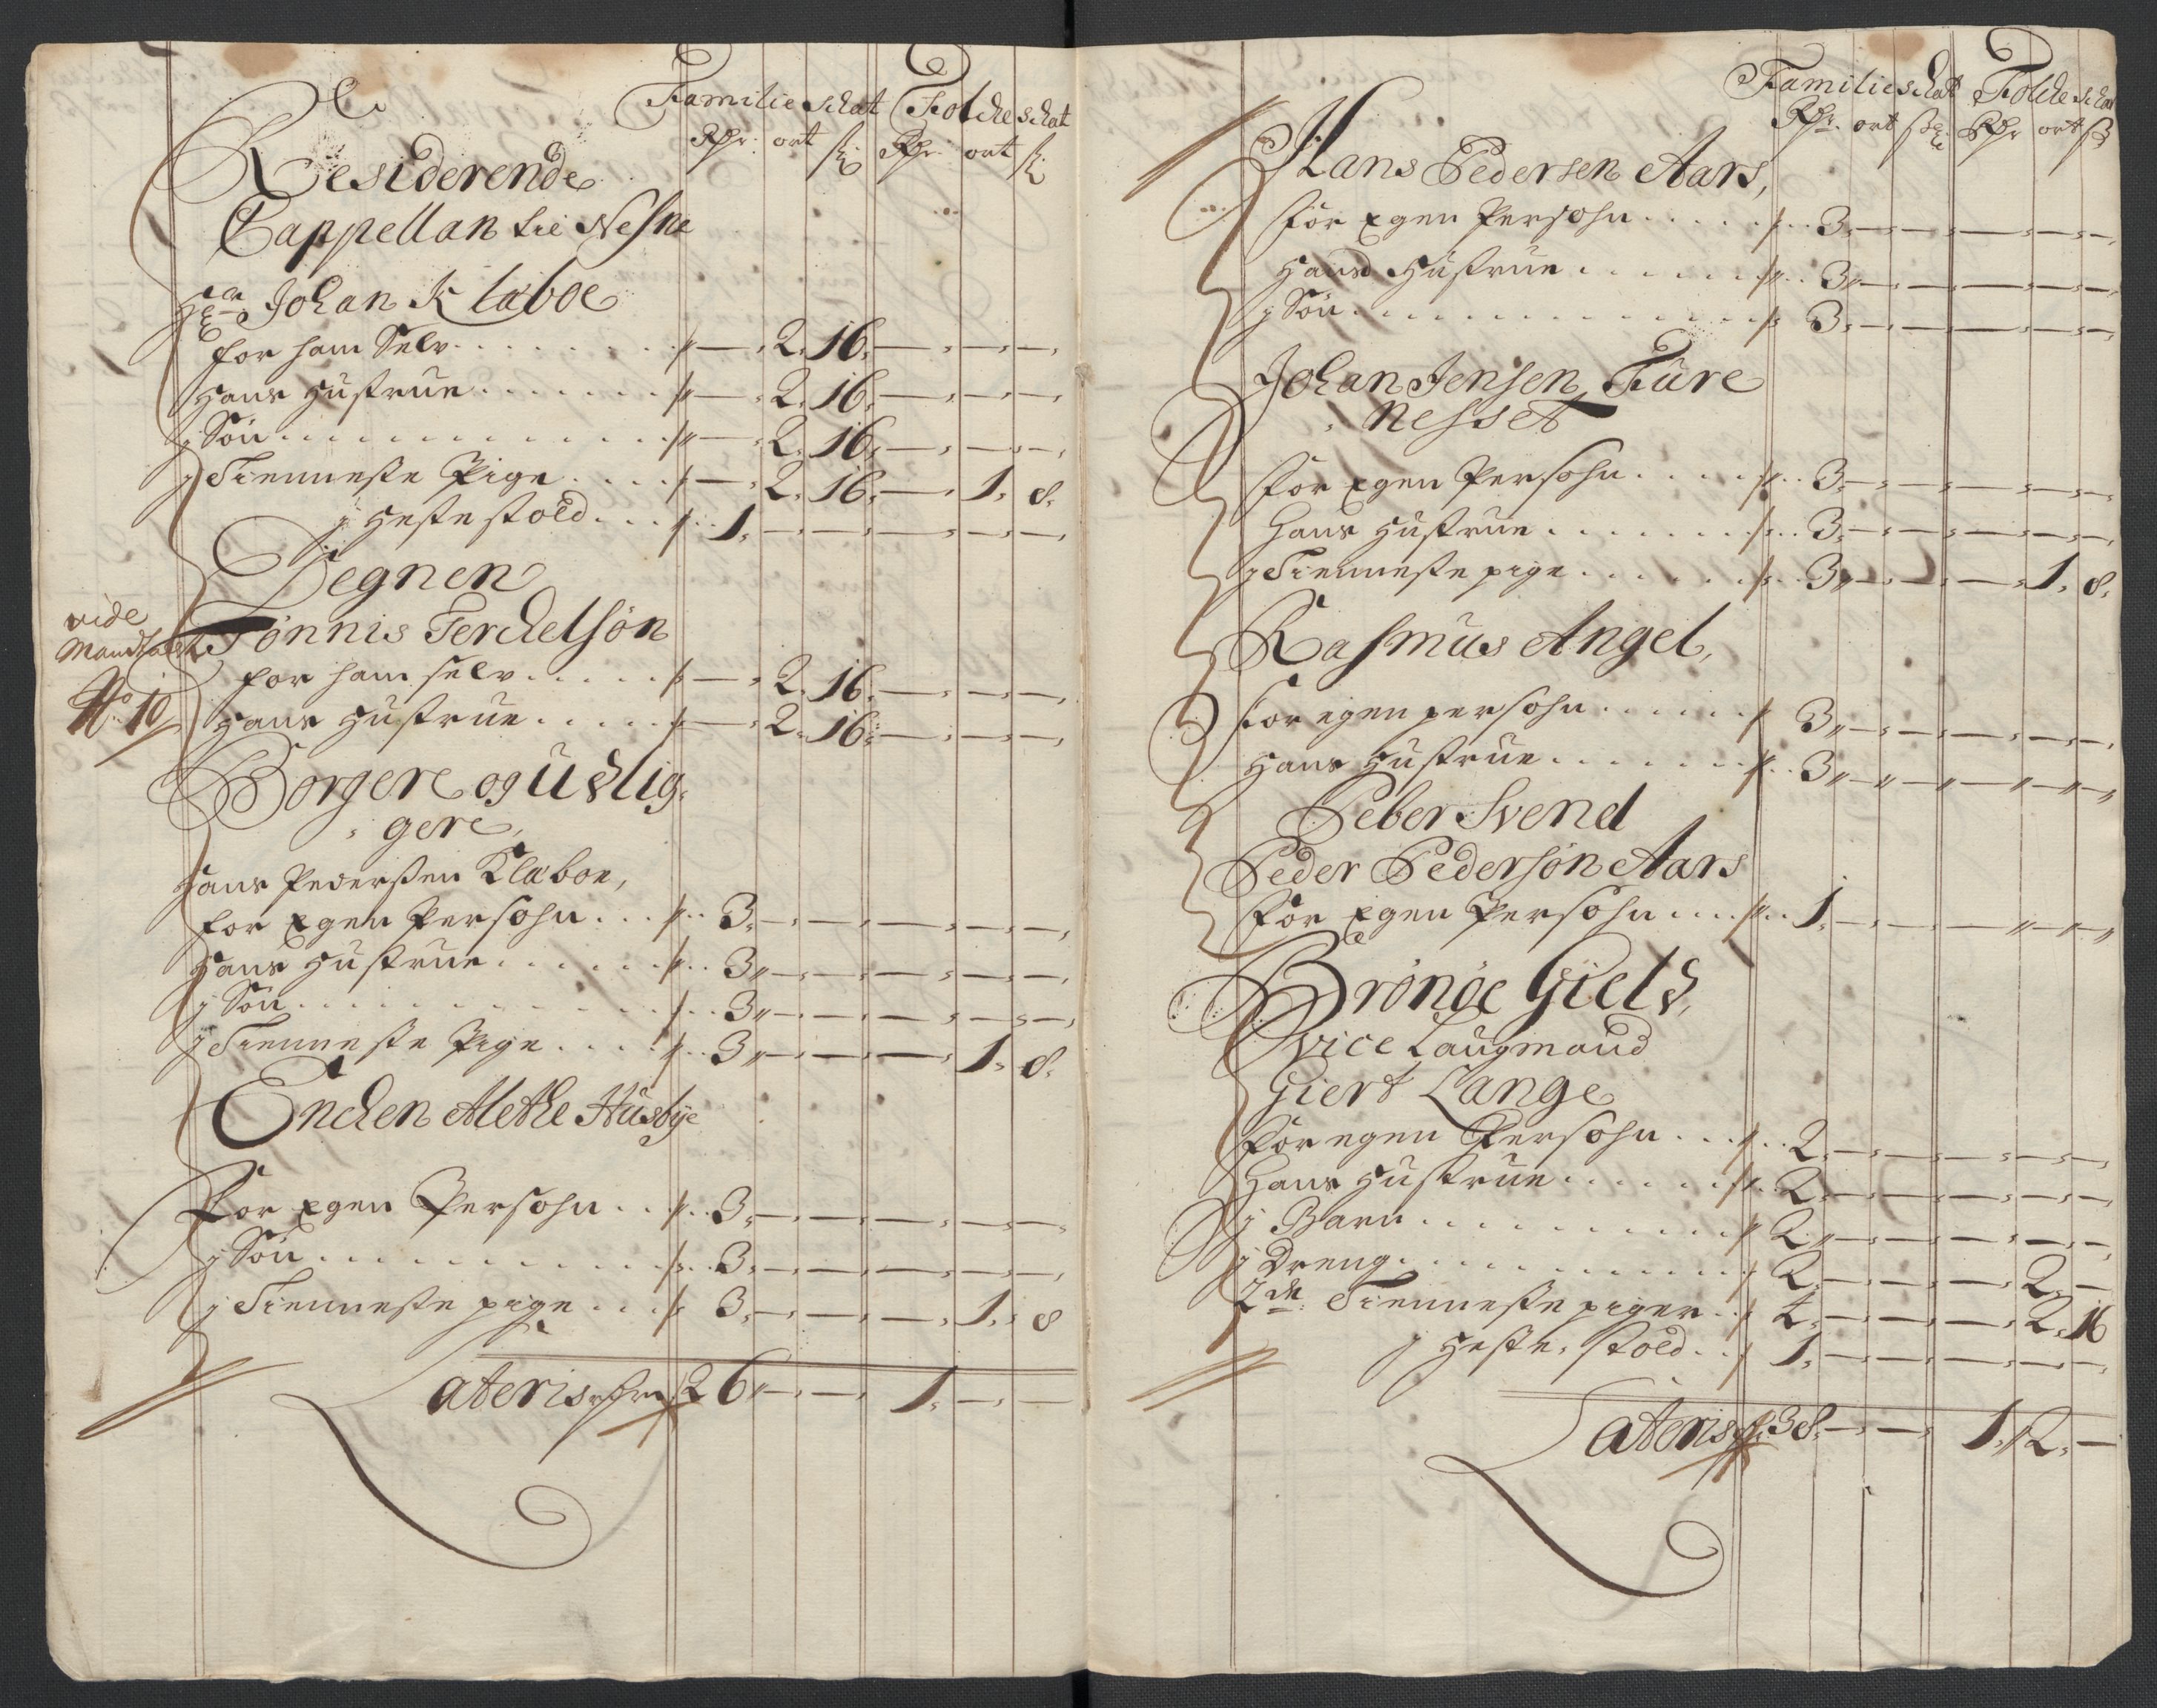 Familie schat Folche schat
Rdr ort ß Rdr ort ß
Residerende
Cappellan til Nesne
Hr Johan Klæboe
for ham Selv . . . 2. 16. — — —
Hans Hustrue . . . 2. 16. — — —
j Søn . . . 2. 16. — — —
j Tienneste Pige . . . 2. 16. — 1. 8.
j Heste stold . . . 1. — — — — —
Degnen
vide
Mandtallet
No 10
Tønnis Terchelsøn
for ham selv . . . 2. 16. — — —
Hans Hustrue . . . 2. 16. — — —
Borgere og Udlig-
gere,
Hans Pedersen Klæboe,
for Egen Persohn . . . 3. — — — — —
Hans Hustrue . . . 3. — — — — —
j Søn . . . 3. — — — — —
j Tienneste Pige . . . 3. — — — 1. 8.
Enchen Alethe Husbye
For Egen Persohn . . 3. — — — — —
j Søn . . . 3. — — — — —
j Tienneste pige . . . 3. — — — 1. 8
Lateris 26. — — 1. — —
Familie schat Folche schat
Rdr. ort ß Rdr ort ß
Hans Pedersen Aars,
for Egen Persohn . . . 3. — — — — —
Hans Hustrue . . . 3. — — — — —
j Søn . . . 3. — — — — —
Johan Jensen Fure
nesset
for Egen Persohn . . . 3. — — — — —
Hans Hustrue . . . 3. — — — — —
j Tienneste pige . . . 3. — — — 1. 8.
Rasmus Angel,
for egen persohn . . . 3. — — — — —
Hans Hustrue . . . 3. — — — — —
Peber Svend
Peder Pedersøn Aars
for Egen Persohn . . . 1. — — — — —
Brønøe Gield,
Vice Laugmand
Giert Lange
for egen Persohn . . . 2. — — — — —
Hans Hustrue . . . 2. — — — — —
j Barn . . . 2. — — — — —
j Dreng . . . 2. — — — 2. —
2de Tienneste piger . . 4. — — — 2. 16
j Heste stold . . 1. — — — — —
Lateris 38. — — 1. 2. —